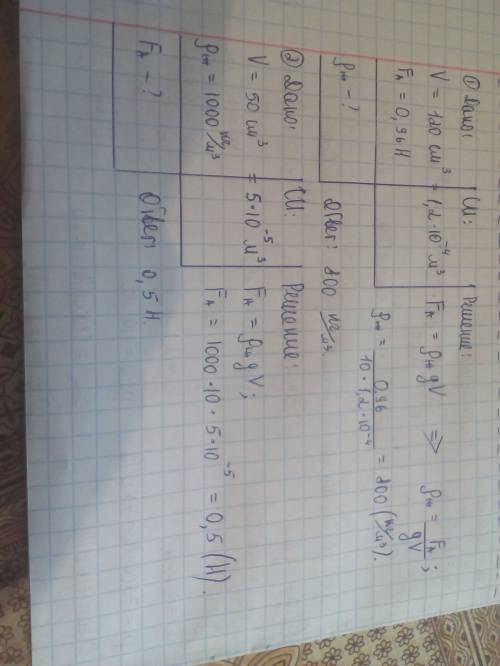 ① Дано:
V = 120 см³
F_A = 0,96 Н
ρ_ж - ?
СИ:
= 1,2·10⁻⁴ м³
Решение:
F_A = ρ_ж gV ⇒ ρ_ж = F_A / gV;
ρ_ж = 0,96 / 10·1,2·10⁻⁴ = 800 (кг/м³).
Ответ: 800 кг/м³.
② Дано:
V = 50 см³
ρ_ж = 1000 кг/м³
F_A - ?
СИ:
= 5·10⁻⁵ м³
Решение:
F_A = ρ_ж gV;
F_A = 1000·10·5·10⁻⁵ = 0,5 (Н).
Ответ 0,5 Н